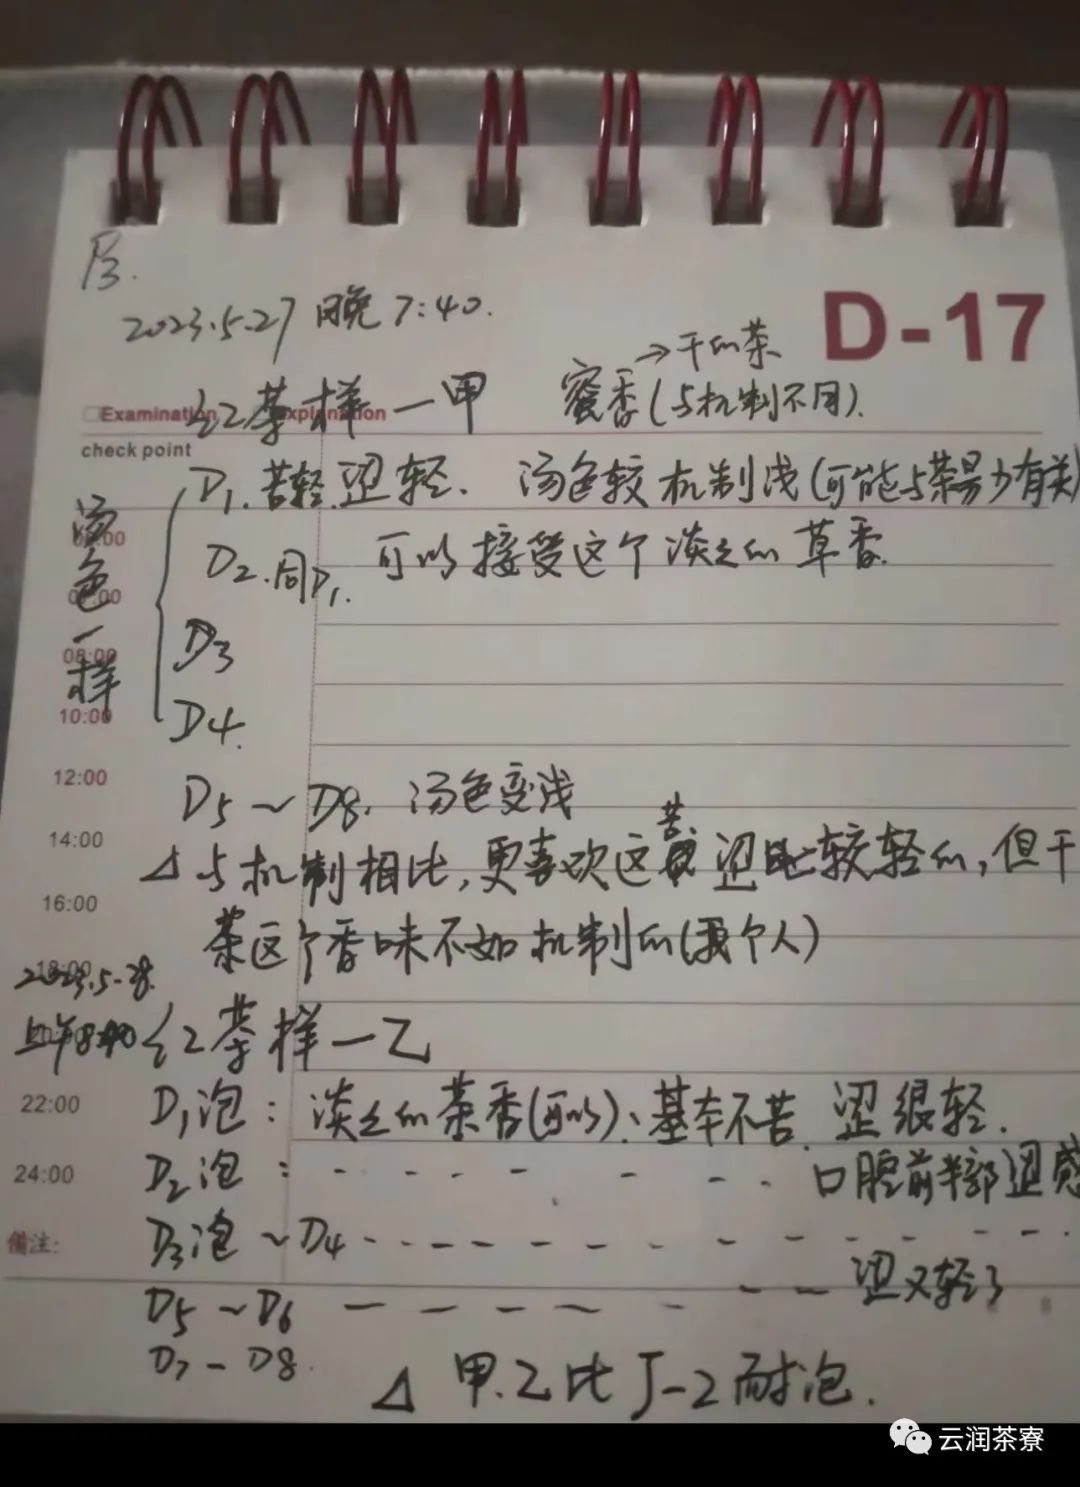 P3.
2023.5.27 晚7:40.
D-17
→干的茶
红茶样一甲 蜜香(与机制不同).
Examination Explanation
check point
D1. 苦轻.涩轻. 汤色较机制浅(可能与茶易少有关)
汤色一样
06:00
D2.同D1. 可以接受这个淡淡的草香.
07:00
D3
08:00
D4.
10:00
12:00
D5~D8. 汤色变浅
14:00
△与机制相比,更喜欢这苦涩比较轻的,但干
16:00
茶这个香味不如机制的(我个人)
18:00
2023.5.28.
上午8:40 红茶样一乙
22:00
D1泡: 淡淡的茶香(可以)、基本不苦. 涩很轻.
24:00
D2泡: 口腔前半部涩感
備注:
D3泡~D4
涩又轻了
D5~D6
D7-D8.
△ 甲.乙比J-2耐泡.
云润茶寮